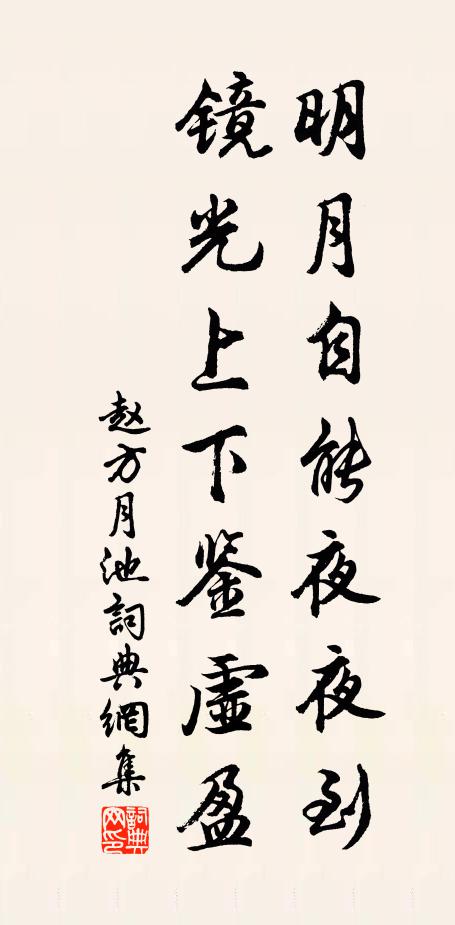 明月自能夜夜到
镜光上下鉴虚盈
赵方月池詞典網集
詞典網印